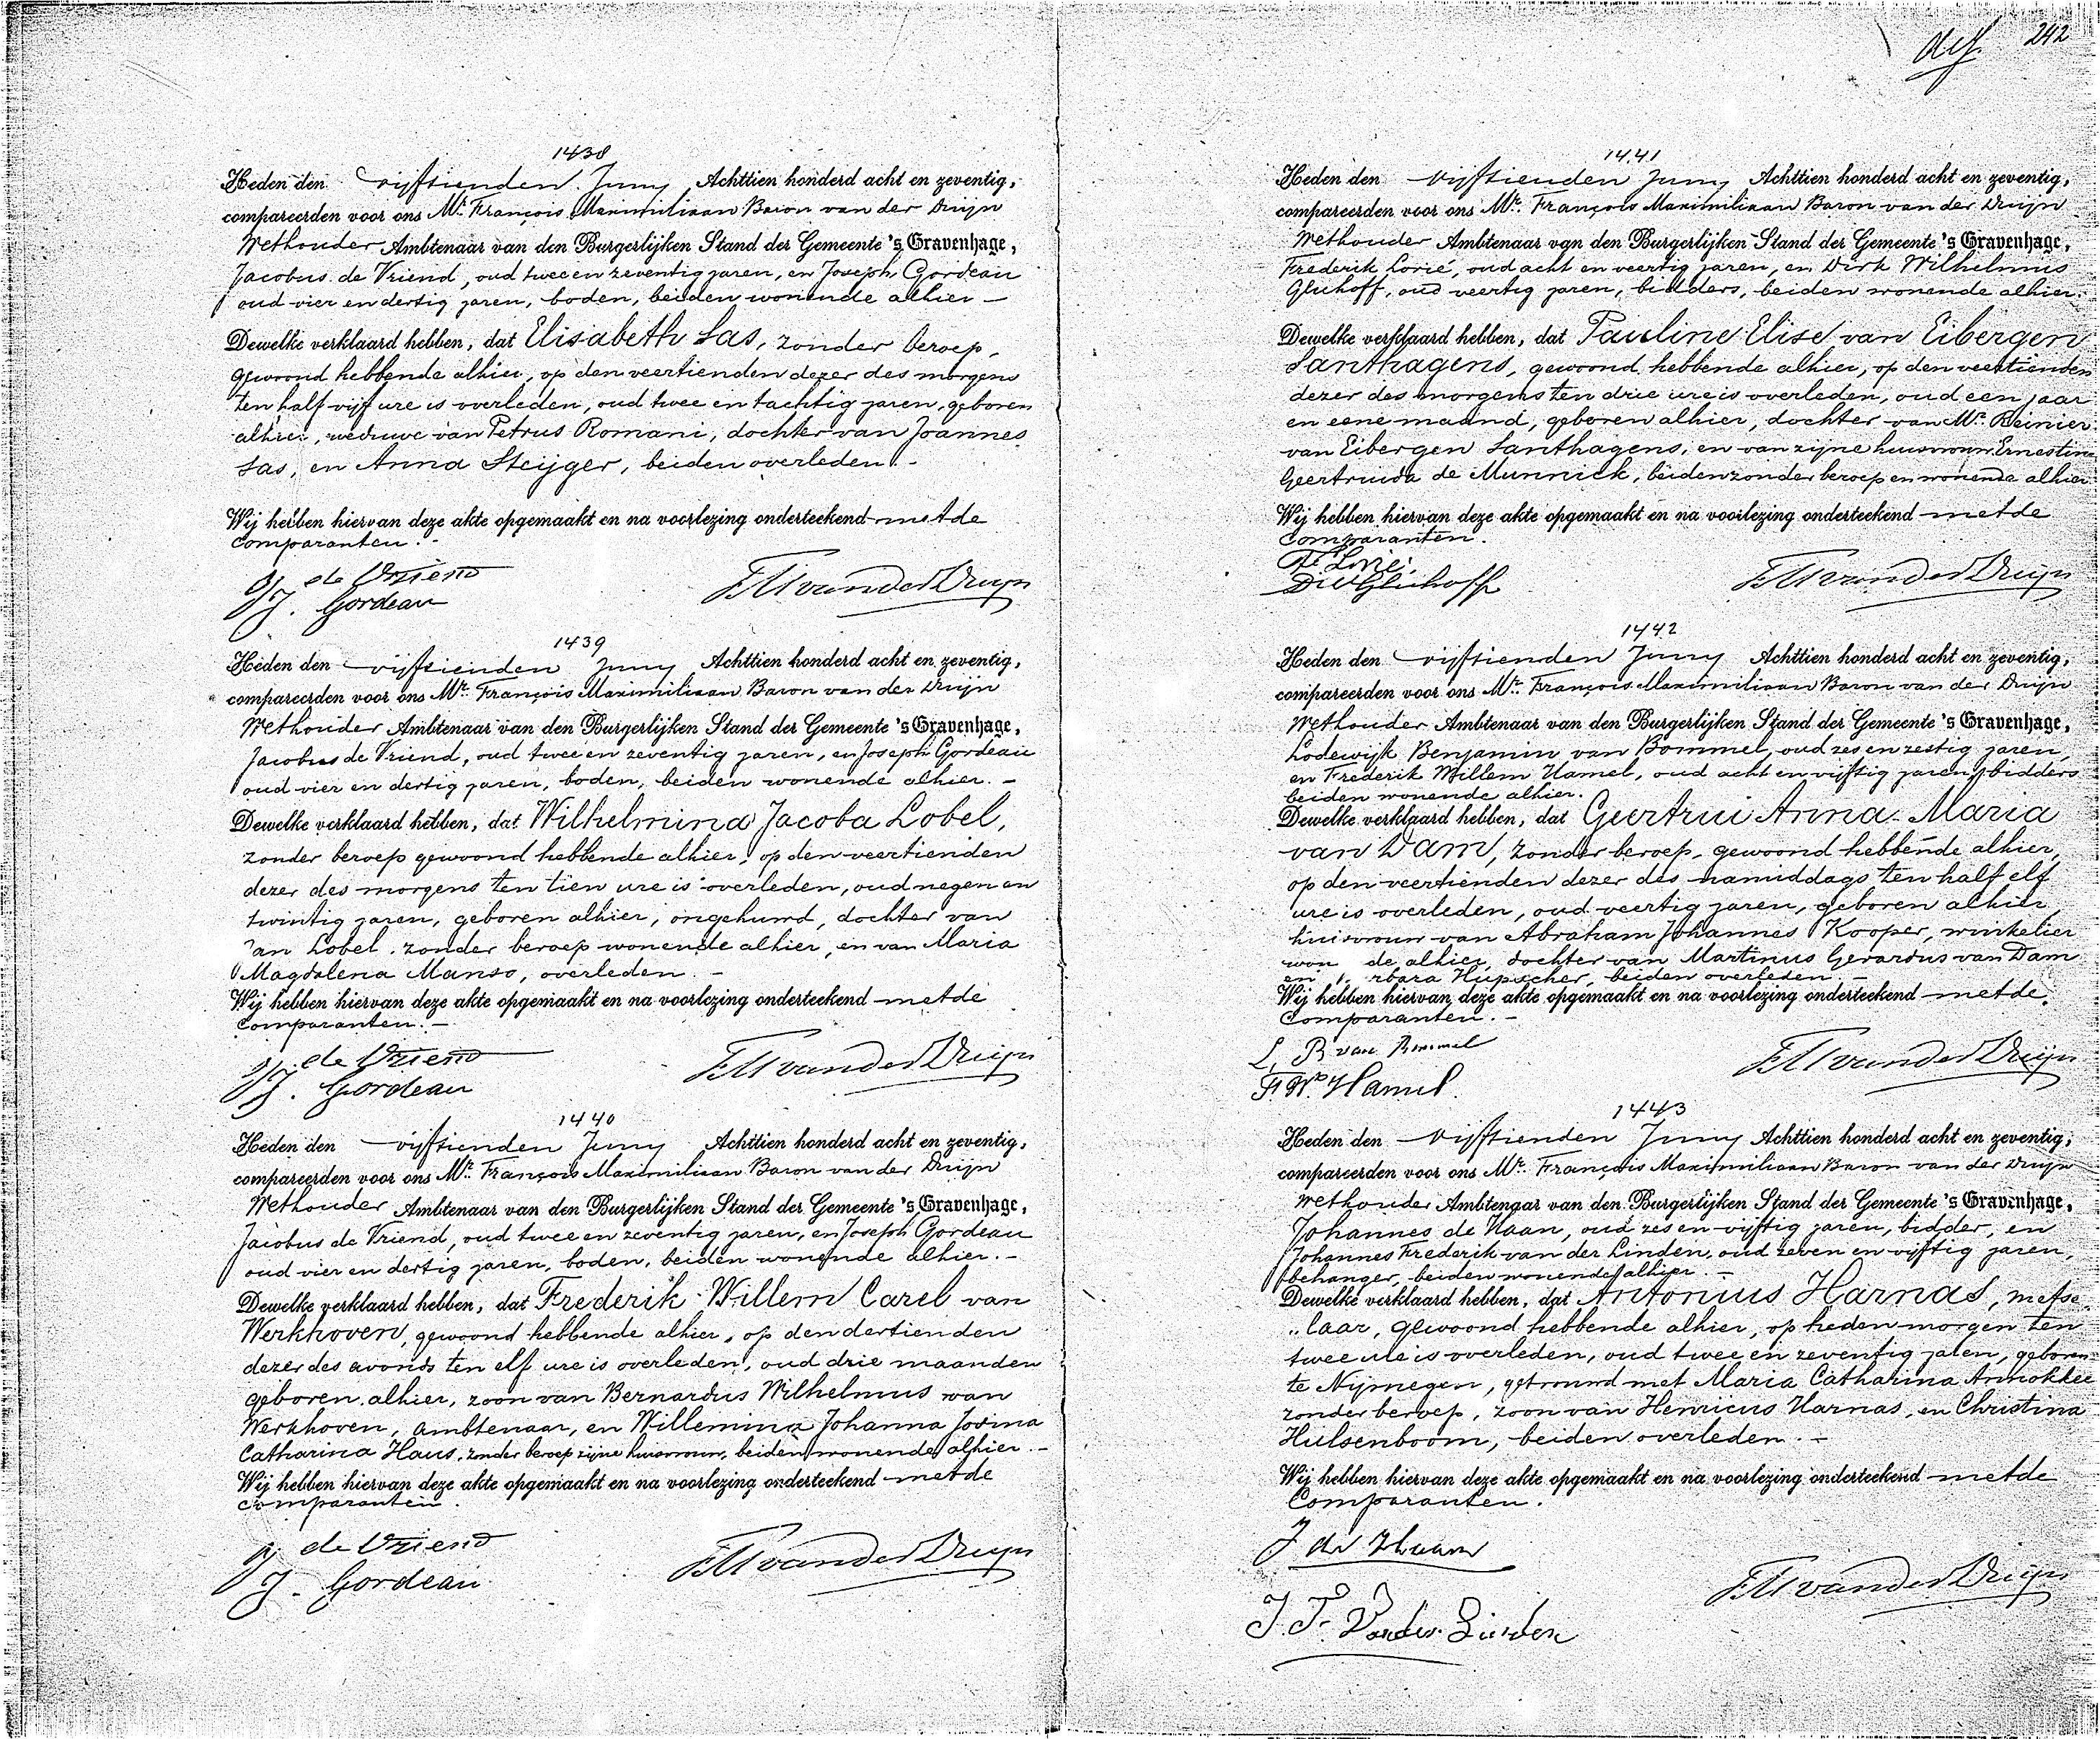 242
1438
Heden den vijftienden Juny Achttien honderd acht en zeventig,
compareerden voor ons Mr. François Maximiliaan Baron van der Duijn
Wethouder Ambtenaar van den Burgerlijken Stand der Gemeente 's Gravenhage,
Jacobus de Vriend, oud twee en zeventig jaren, en Joseph Gordeau
oud vier en dertig jaren, boden, beiden wonende alhier —
Dewelke verklaard hebben, dat Elisabeth Las, zonder beroep,
gewoond hebbende alhier, op den veertienden dezer des morgens
ten half vijf ure is overleden, oud twee en tachtig jaren, geboren
alhier, weduwe van Petrus Romani, dochter van Joannes
Las, en Anna Steijger, beiden overleden. -
Wij hebben hiervan deze akte opgemaakt en na voorlezing onderteekend met de
Comparanten. -
J. de Vriend
J. Gordeau
FM van der Duijn
1439
Heden den vijftienden Juny Achttien honderd acht en zeventig,
compareerden voor ons Mr. François Maximiliaan Baron van der Duijn
Wethouder Ambtenaar van den Burgerlijken Stand der Gemeente 's Gravenhage,
Jacobus de Vriend, oud twee en zeventig jaren, en Joseph Gordeau
oud vier en dertig jaren, boden, beiden wonende alhier. -
Dewelke verklaard hebben, dat Wilhelmina Jacoba Lobel,
zonder beroep gewoond hebbende alhier, op den veertienden
dezer des morgens ten tien ure is overleden, oud negen en
twintig jaren, geboren alhier, ongehuwd, dochter van
an Lobel zonder beroep wonende alhier, en van Maria
Magdalena Manso, overleden. -
Wij hebben hiervan deze akte opgemaakt en na voorlezing onderteekend met de
Comparanten. -
J. de Vriend
J. Gordeau
FM van der Duijn
1440
Heden den vijftienden Juny Achttien honderd acht en zeventig,
compareerden voor ons Mr. François Maximiliaan Baron van der Duijn
Wethouder Ambtenaar van den Burgerlijken Stand der Gemeente 's Gravenhage,
Jacobus de Vriend, oud twee en zeventig jaren, en Joseph Gordeau
oud vier en dertig jaren, boden, beiden wonende alhier. -
Dewelke verklaard hebben, dat Frederik Willem Carel van
Werkhoven, gewoond hebbende alhier, op den dertienden
dezer des avonds ten elf ure is overleden, oud drie maanden
geboren alhier, zoon van Bernardus Wilhelmus van
Werkhoven, ambtenaar, en Willemina Johanna Jovina
Catharina Haus, zonder beroep zijne huisvrouw, beiden wonende alhier. -
Wij hebben hiervan deze akte opgemaakt en na voorlezing onderteekend met de
Comparanten.
J. de Vriend
J. Gordeau
FM van der Duijn
1441
Heden den vijftienden Juny Achttien honderd acht en zeventig,
compareerden voor ons Mr. François Maximiliaan Baron van der Duijn
Wethouder Ambtenaar van den Burgerlijken Stand der Gemeente 's Gravenhage,
Frederik Lorié, oud acht en veertig jaren, en Dirk Wilhelmus
Gluhoff, oud veertig jaren, bidders, beiden wonende alhier.
Dewelke verklaard hebben, dat Pauline Elise van Eibergen
Santhagens, gewoond hebbende alhier, op den veertienden
dezer des morgens ten drie ure is overleden, oud een jaar
en eene maand, geboren alhier, dochter van Mr. Reinier
van Eibergen Santhagens, en van zijne huisvrouw Ernestina
Geertruida de Munnick, beiden zonder beroep en wonende alhier
Wij hebben hiervan deze akte opgemaakt en na voorlezing onderteekend met de
Comparanten.
F. Lorié.
DW Gluhoff
FM van der Duijn
1442
Heden den vijftienden Juny Achttien honderd acht en zeventig,
compareerden voor ons Mr. François Maximiliaan Baron van der Duijn
Wethouder Ambtenaar van den Burgerlijken Stand der Gemeente 's Gravenhage,
Lodewijk Benjamin van Bommel, oud zes en zestig jaren,
en Frederik Willem Hamel, oud acht en vijftig jaren, bidders
beiden wonende alhier.
Dewelke verklaard hebben, dat Geertrui Anna Maria
van Dam, zonder beroep, gewoond hebbende alhier,
op den veertienden dezer des namiddags ten half elf
ure is overleden, oud veertig jaren, geboren alhier,
huisvrouw van Abraham Johannes Kooper, winkelier
won de alhier, dochter van Martinus Gerardus van Dam
en rbara Hupscher, beiden overleden -
Wij hebben hiervan deze akte opgemaakt en na voorlezing onderteekend met de
Comparanten. -
L. B van Bommel
F. W. Hamel.
FM van der Duijn
1443
Heden den vijftienden Juny Achttien honderd acht en zeventig,
compareerden voor ons Mr. François Maximiliaan Baron van der Duijn
Wethouder Ambtenaar van den Burgerlijken Stand der Gemeente 's Gravenhage,
Johannes de Haan, oud zes en vijftig jaren, bidder, en
Johannes Frederik van der Linden, oud zeven en vijftig jaren,
behanger, beiden wonende alhier. -
Dewelke verklaard hebben, dat Antonius Harnas, metse-
laar, gewoond hebbende alhier, op heden morgen ten
twee ure is overleden, oud twee en zeventig jaren, geboren
te Nijmegen, getrouwd met Maria Catharina Annokkee
zonder beroep, zoon van Henricus Harnas, en Christina
Hulsenboom, beiden overleden. -
Wij hebben hiervan deze akte opgemaakt en na voorlezing onderteekend met de
Comparanten.
J de Haan
J. F. Van der Linden
FM van der Duijn